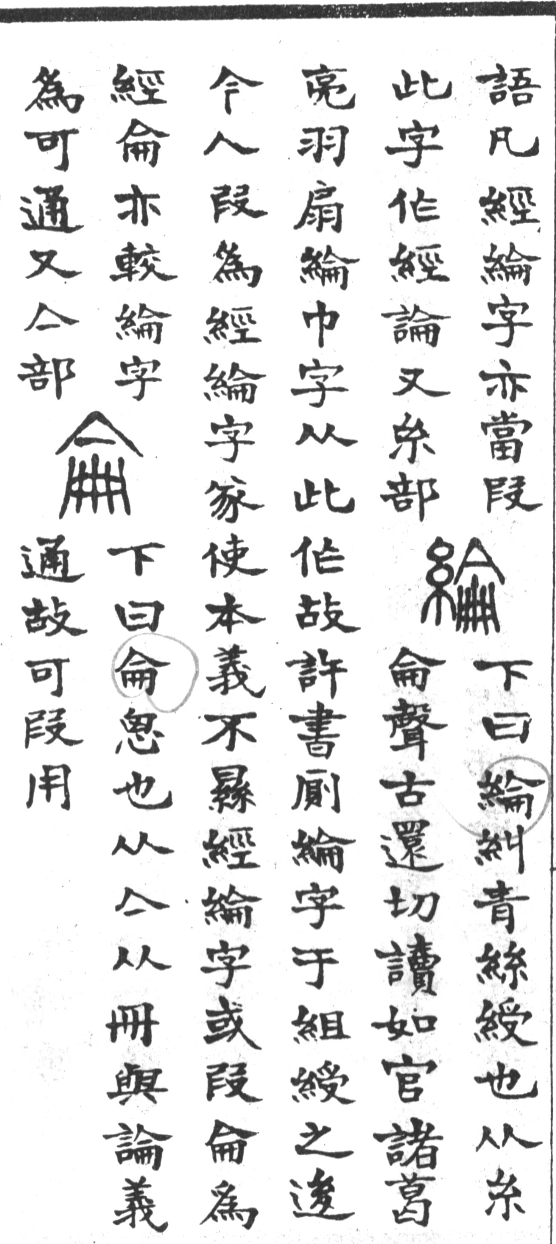 語凡經綸字亦當叚
此字作經論又糸部
綸
下曰綸糾青絲綬也从糸
侖聲古還切讀如官諸葛
亮羽扇綸巾字从此作故許書廁綸字于組綬之後
今人叚爲經綸字㒸使本義不㬎經綸字或叚侖爲
經侖亦較綸字
爲可通又亼部
侖
下曰侖恖也从亼从冊與論義
通故可叚用